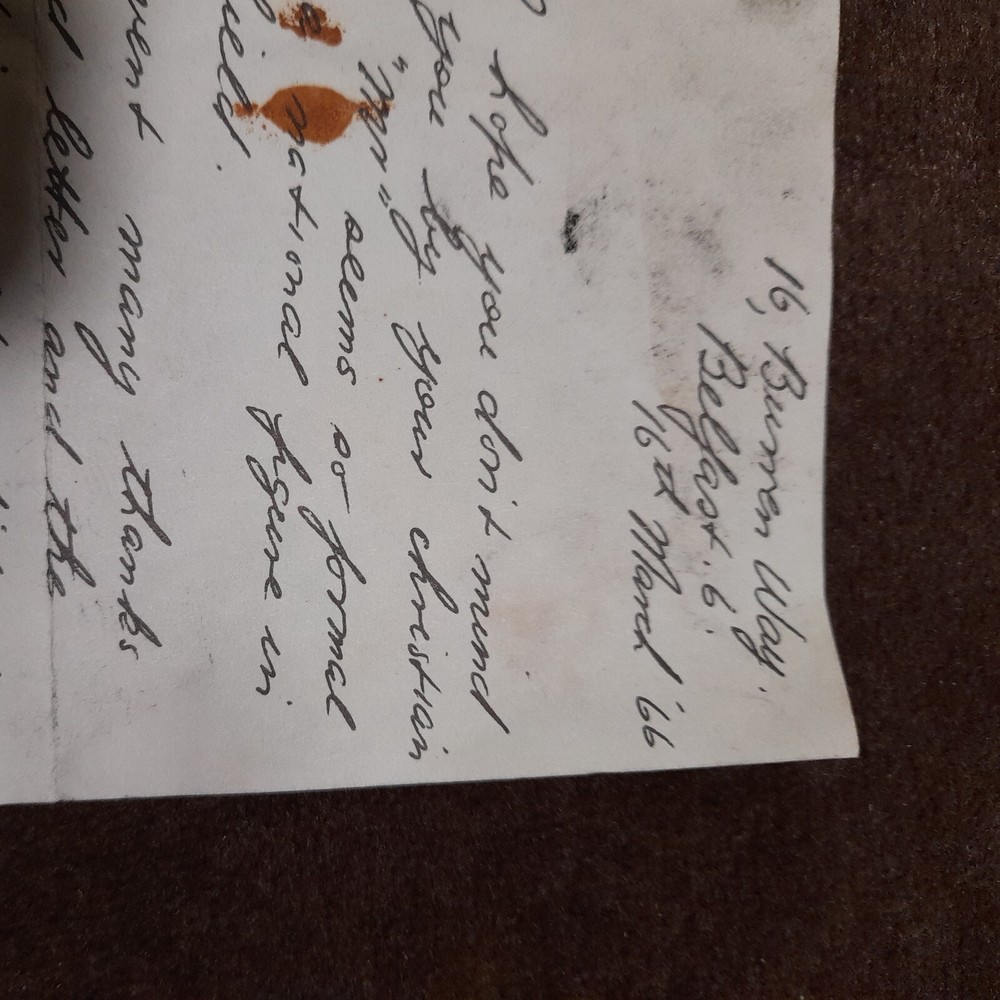 16, Burren Way,
Belfast. 6.
16th March '66
hope you don't mind
you by your christian
"Mr" seems so formal
national figure in
many thanks
letter and the